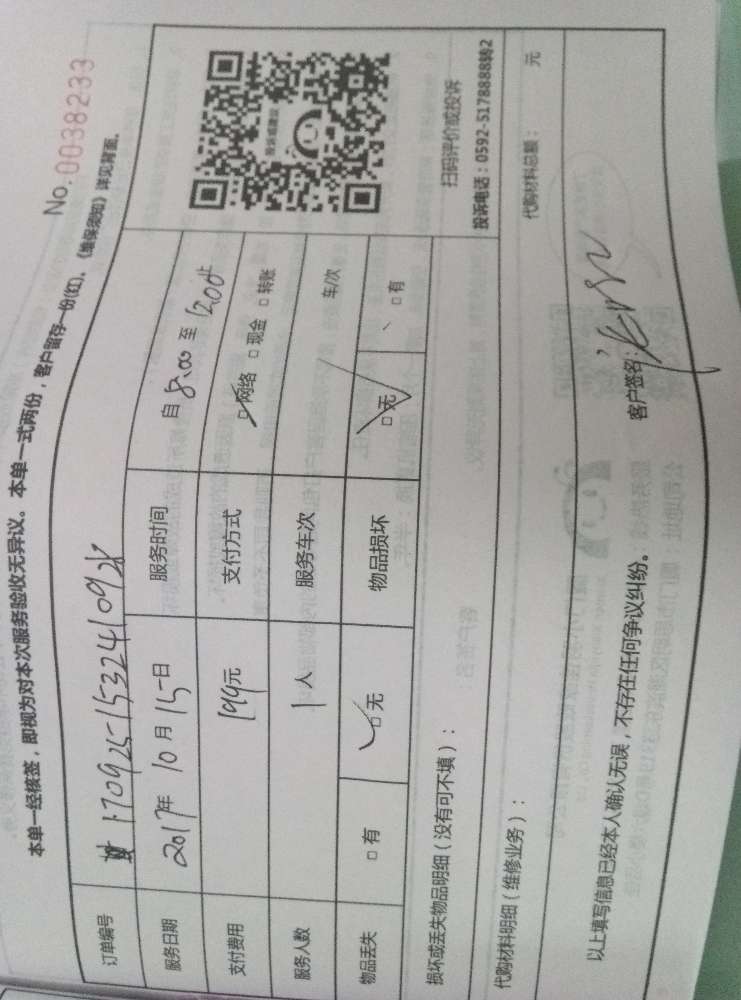 No. 0038233
本单一经核签，即视为对本次服务验收无异议。本单一式两份，客户留存一份(红)、《维保须知》详见背面。
订单编号 170925-153241092
服务日期 2017年 10月 15日 服务时间 自 8:00 至 12:00
支付费用 199元 支付方式 □网络 □现金 □转账
服务人数 1人 服务车次 / 车/次
物品丢失 □有 □无 物品损坏 □无 □有
损坏或丢失物品明细（没有可不填）：
投诉或建议
扫码评价或投诉
投诉电话：0592-5178888转2
代购材料明细（维修业务）： 代购材料总额： 元
以上填写信息已经本人确认无误，不存在任何争议纠纷。 客户签名：